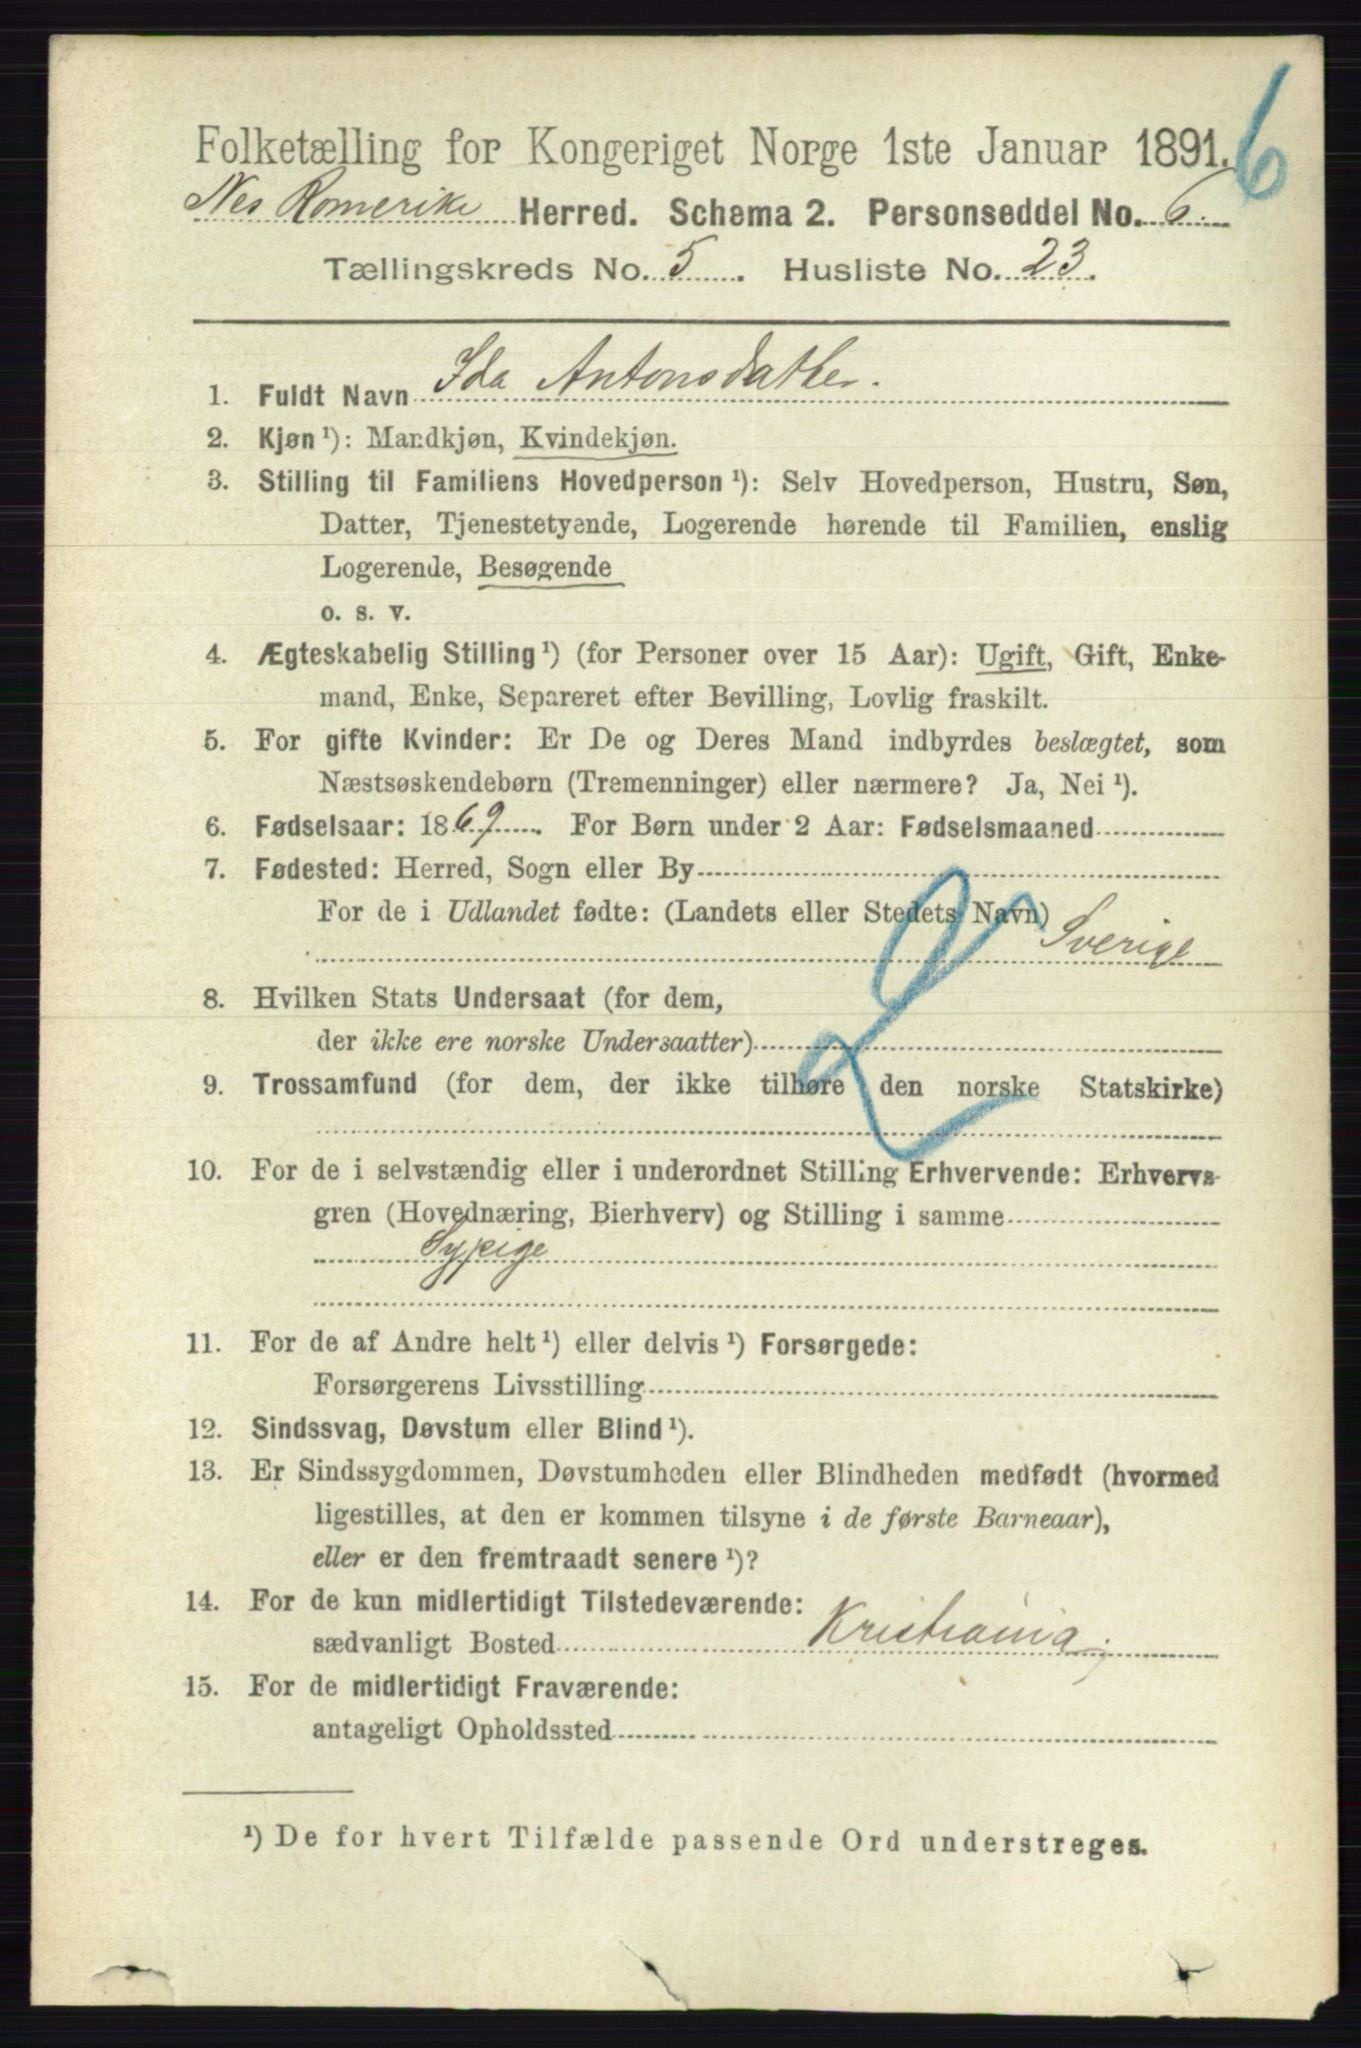 Folketælling for Kongeriget Norge 1ste Januar 1891.
6
Nes Romerike Herred. Schema 2. Personseddel No. 6.
Tællingskreds No. 5. Husliste No. 23.
1. Fuldt Navn Ida Antonsdatter.
2. Kjøn ¹): Mandkjøn, Kvindekjøn.
3. Stilling til Familiens Hovedperson ¹): Selv Hovedperson, Hustru, Søn,
Datter, Tjenestetyende, Logerende hørende til Familien, enslig
Logerende, Besøgende
o. s. v.
4. Ægteskabelig Stilling ¹) (for Personer over 15 Aar): Ugift, Gift, Enke-
mand, Enke, Separeret efter Bevilling, Lovlig fraskilt.
5. For gifte Kvinder: Er De og Deres Mand indbyrdes beslægtet, som
Næstsøskendebørn (Tremenninger) eller nærmere? Ja, Nei ¹).
6. Fødselsaar: 1869. For Børn under 2 Aar: Fødselsmaaned
7. Fødested: Herred, Sogn eller By
For de i Udlandet fødte: (Landets eller Stedets Navn)
Sverige
8. Hvilken Stats Undersaat (for dem,
der ikke ere norske Undersaatter)
9. Trossamfund (for dem, der ikke tilhøre den norske Statskirke)
10. For de i selvstændig eller i underordnet Stilling Erhvervende: Erhvervs-
gren (Hovednæring, Bierhverv) og Stilling i samme
Sypige
11. For de af Andre helt ¹) eller delvis ¹) Forsørgede:
Forsørgerens Livsstilling
12. Sindssvag, Døvstum eller Blind ¹).
13. Er Sindssygdommen, Døvstumheden eller Blindheden medfødt (hvormed
ligestilles, at den er kommen tilsyne i de første Barneaar),
eller er den fremtraadt senere ¹)?
14. For de kun midlertidigt Tilstedeværende:
sædvanligt Bosted Kristiania,
15. For de midlertidigt Fraværende:
antageligt Opholdssted
¹) De for hvert Tilfælde passende Ord understreges.